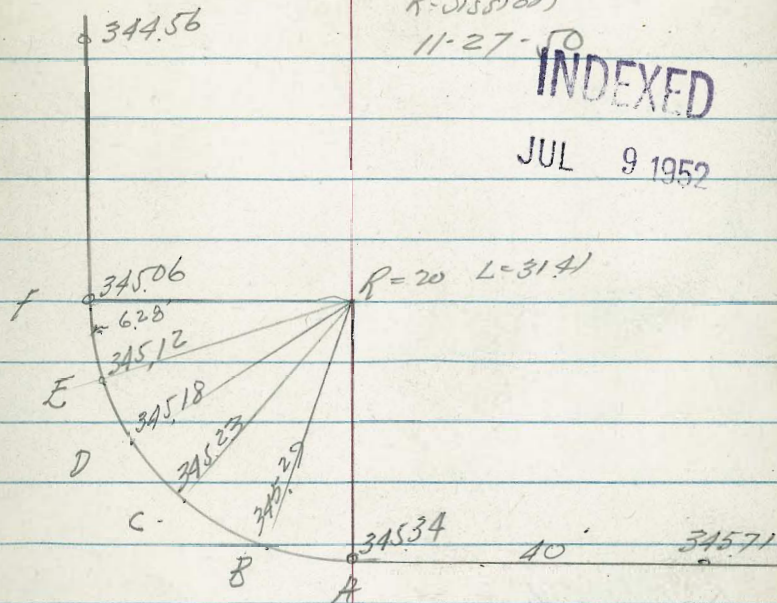 344.56
11-27-50
INDEXED
JUL 9 1952
345.06
R=20 L=31.41
f
6.28'
345.12
E
345.18
D
345.23
345.29
C
345.34
40
345.71
B
A